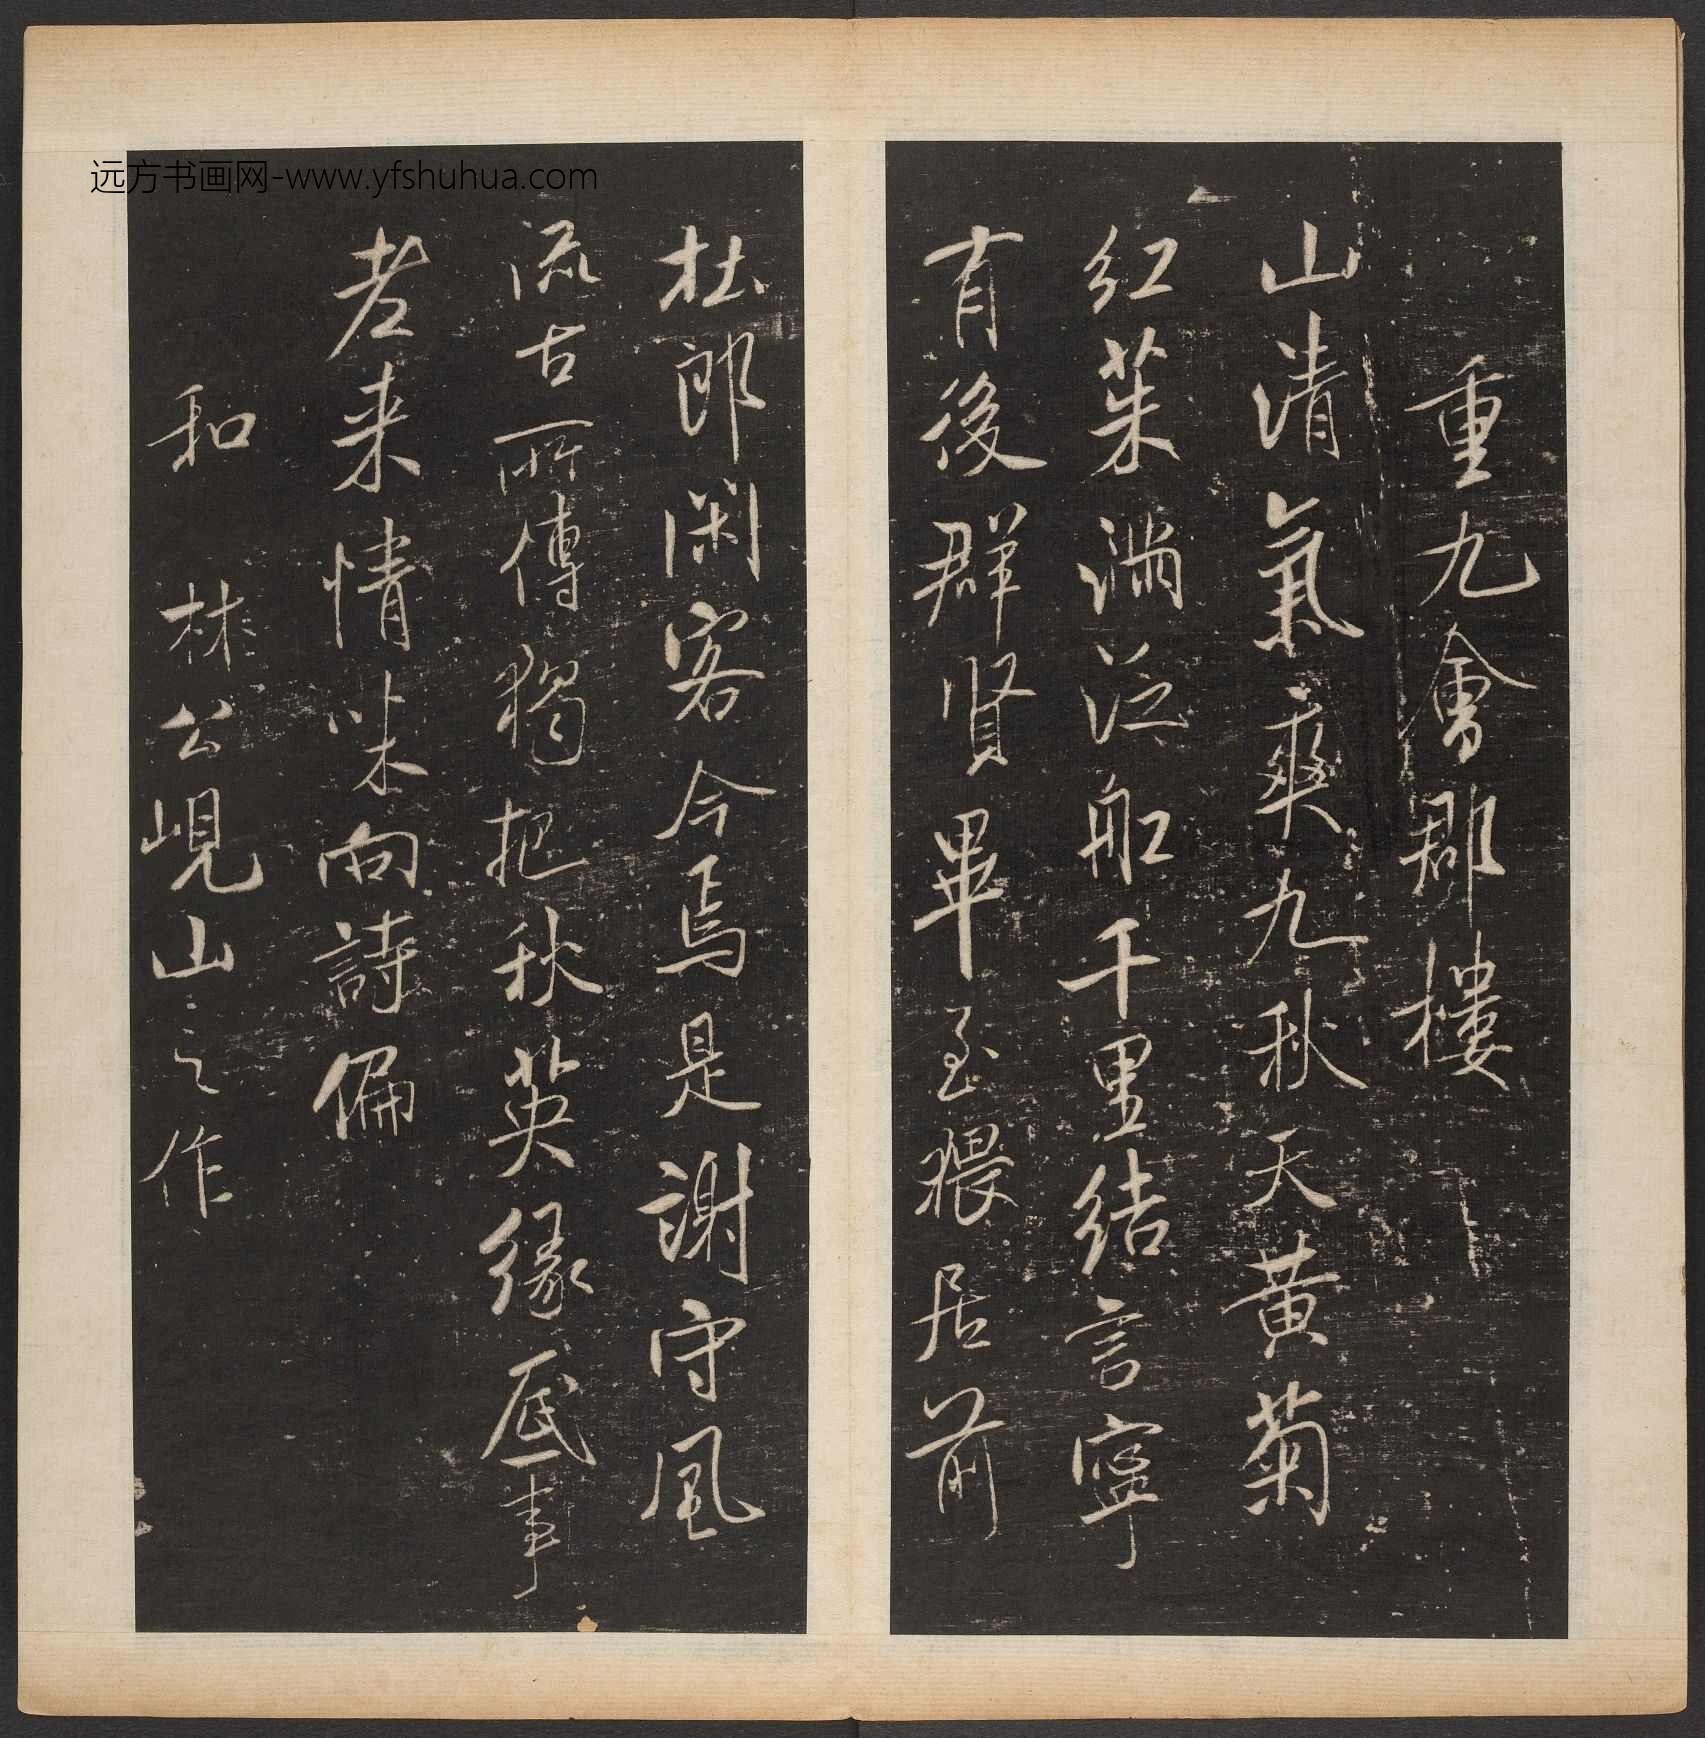 远方书画网-www.yfshuhua.com
重九會郡樓
山清氣爽九秋天黃菊
紅茱滿泛船千里結言寧
有後群賢畢至猥居前
杜郎閑客今焉是謝守風
流古所傳獨把秋英緣底事
老来情味向詩偏
和林公峴山之作